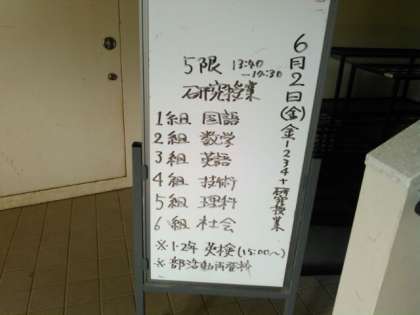 6月2日(金)
金1234+研究授業
5限 13:40
-14:30
研究授業
1組 国語
2組 数学
3組 英語
4組 技術
5組 理科
6組 社会
※1·2年 英検(15:00~)
※部活動再登校